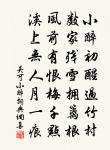 小醉初醒過竹村
數家殘雪擁籬根
風前有恨梅千點
溪上無人月一痕
吳可小醉詞典網書